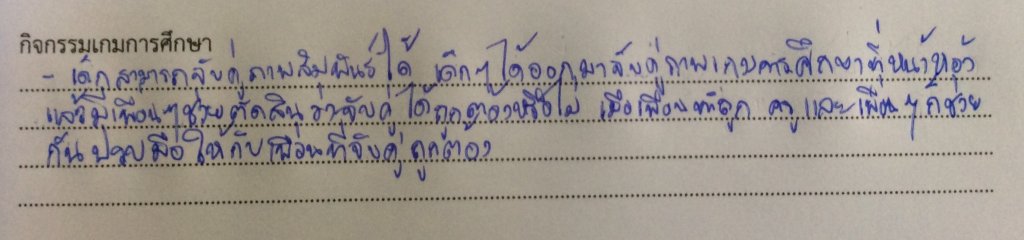 กิจกรรมเกมการศึกษา
- เด็กสามารถจับคู่ภาพสัมพันธ์ได้ เด็กๆได้ออกมาจับคู่ภาพเกมการศึกษาที่หน้าห้อง
แล้วมีเพื่อนๆช่วยตัดสินว่าจับคู่ได้ถูกต้องหรือไม่ เมื่อเพื่อนทำถูก ครูและเพื่อนๆก็ช่วย
กันปรบมือให้กับเพื่อนที่จับคู่ถูกต้อง